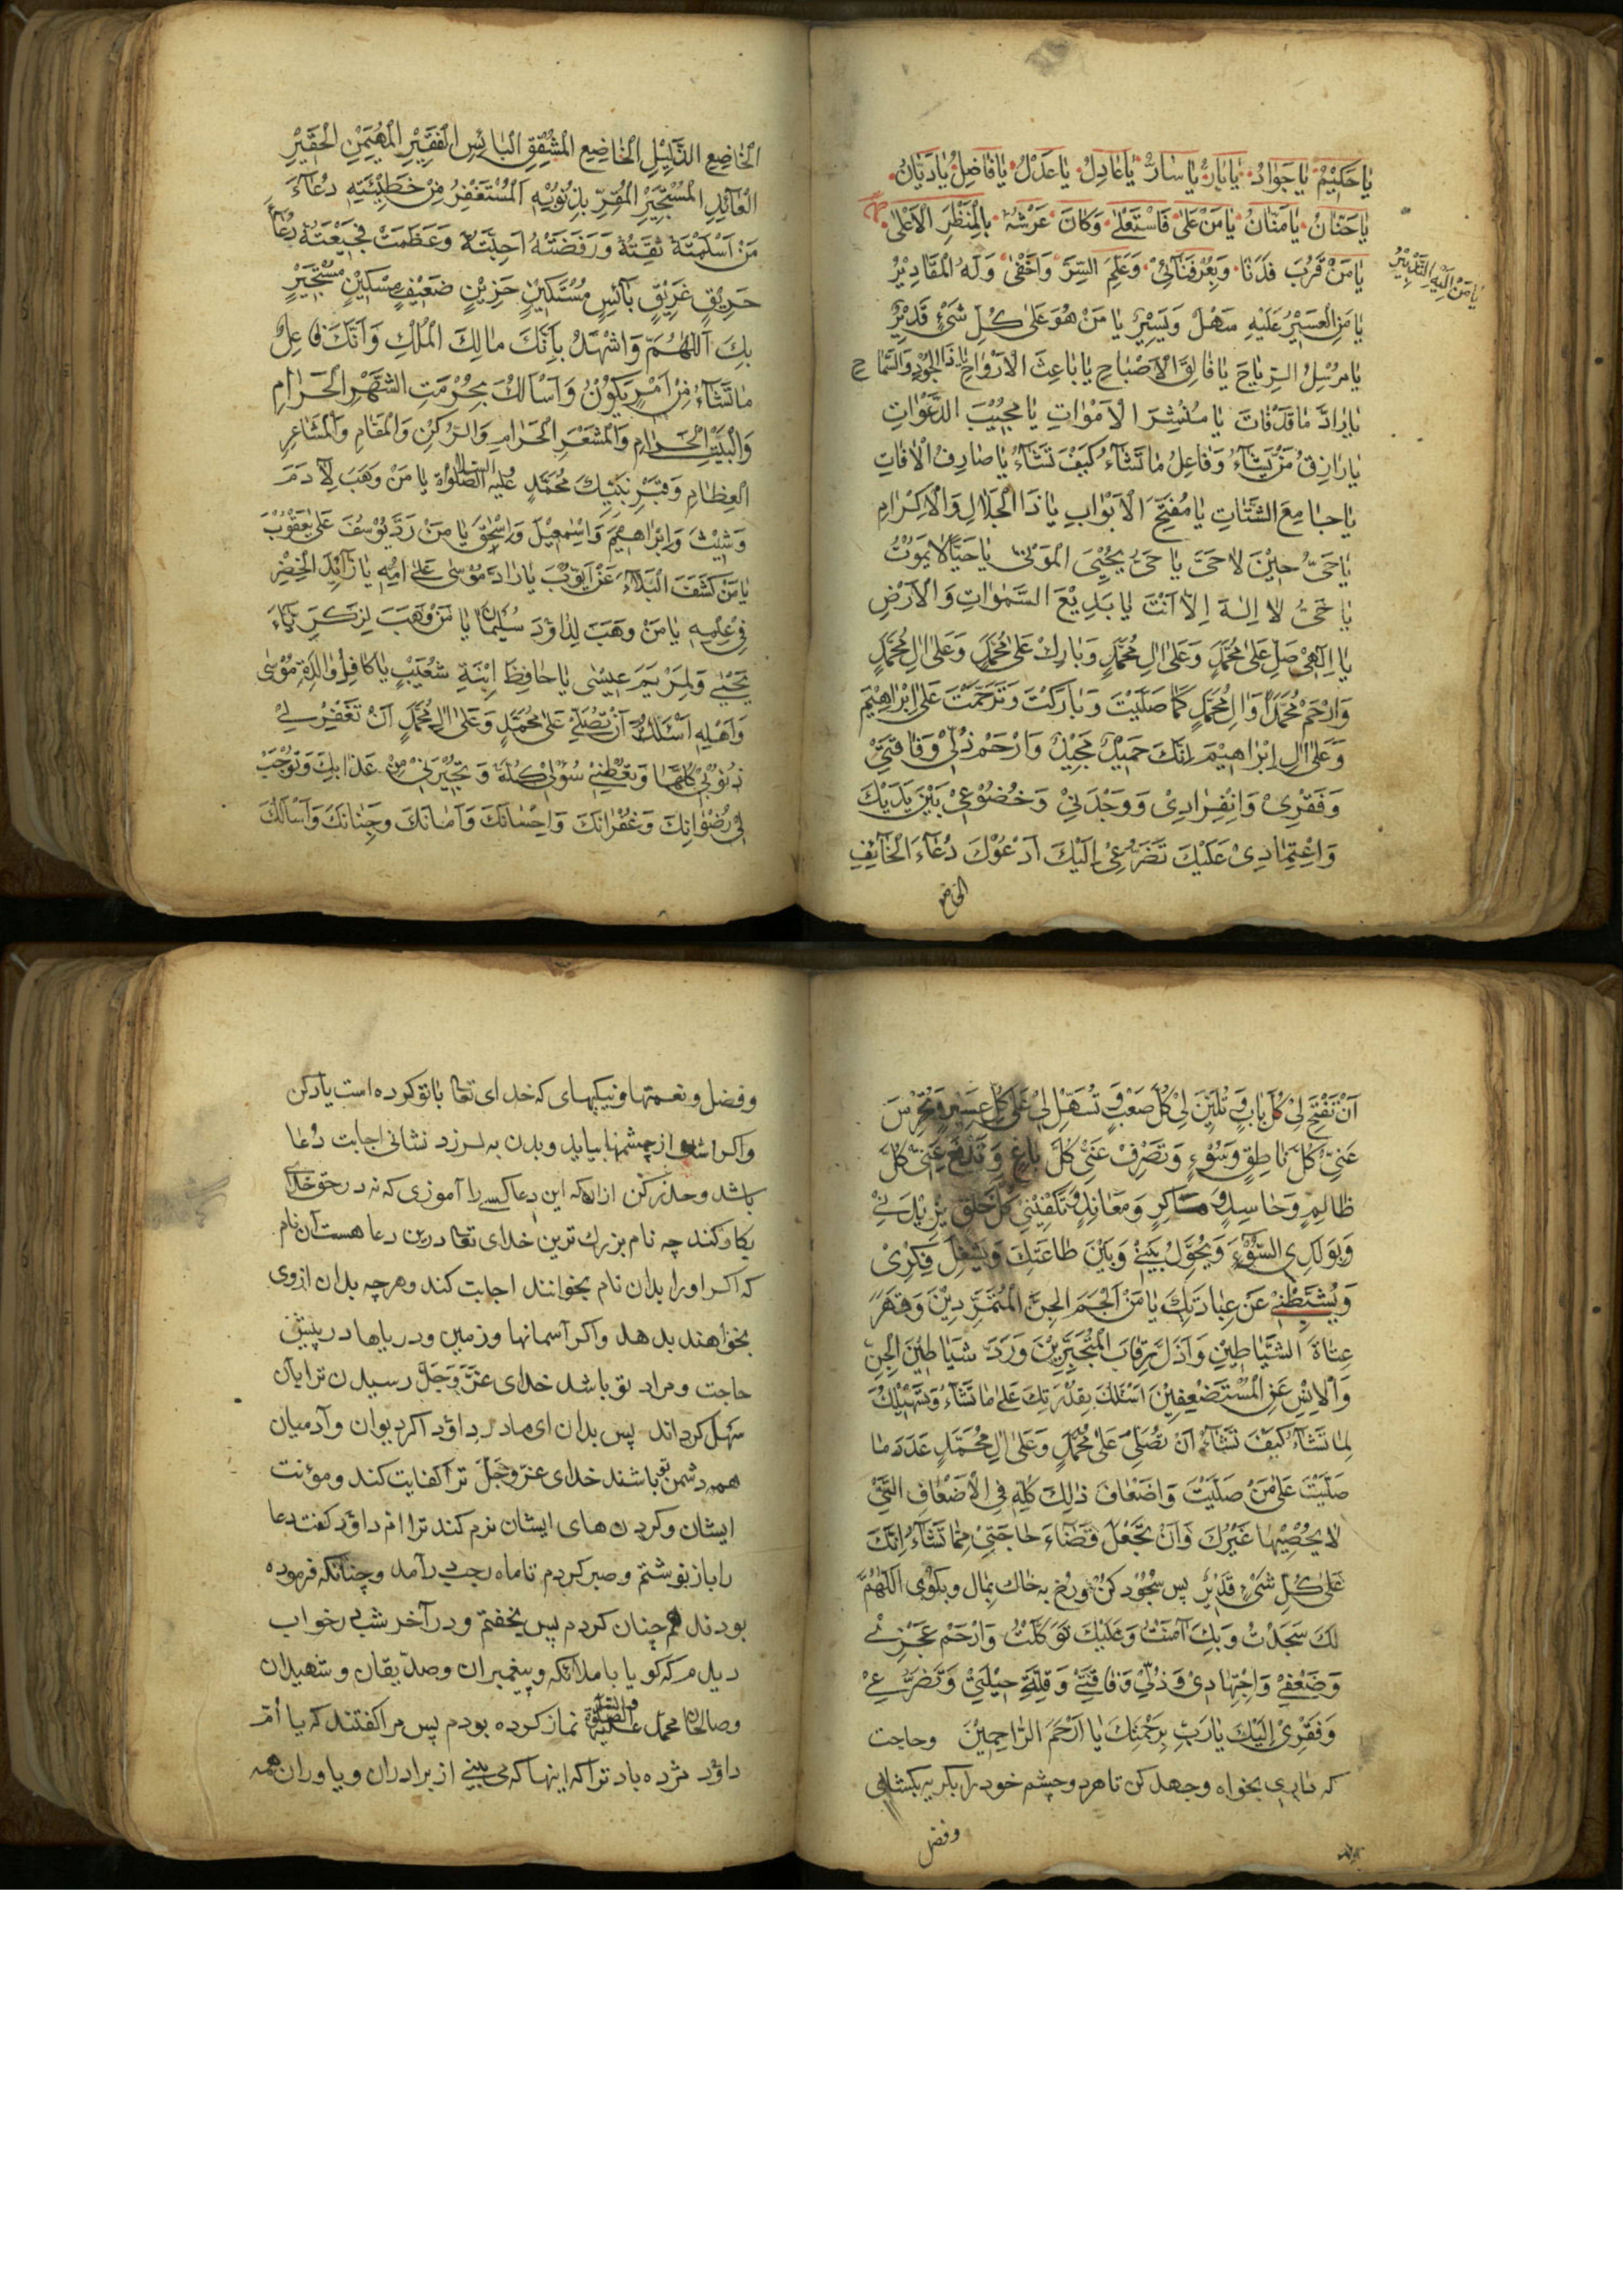 يَا حَكِيْمُ يَا جَوَادُ يَا بَارُّ يَا سَارُّ يَا عَادِلُ يَا عَدْلُ يَا فَاضِلُ يَا دَيَّانُ
يَا حَنَّانُ يَا مَنَّانُ يَا مَنْ عَلٰى فَاسْتَعْلٰے وَكَانَ عَرْشُهٗ بِالْمَنْظَرِ الْاَعْلٰى
يَا مَنْ قَرُبَ فَدَنَا وَبَعُدَ فَنَآئِىْ وَعَلِمَ السِّرَّ وَاَخْفٰى وَلَهُ الْمَقَادِيْرُ
يَا مَنْ اِلَيْهِ التَّدْبِيْرُ
يَا مَنِ الْعَسِيْرُ عَلَيْهِ سَهْلٌ وَيَسِيْرٌ يَا مَنْ هُوَ عَلٰى كُلِّ شَىْءٍ قَدِيْرٌ
يَا مُرْسِلُ الرِّيَاحَ يَا فَالِقَ الْاِصْبَاحِ يَا بَاعِثَ الْاَرْوَاحِ يَا ذَا الْجُوْدِ وَالسَّمَاحِ
يَا رَادَّ مَا قَدْ فَاتَ يَا مُنْشِرَ الْاَمْوَاتِ يَا مُجِيْبَ الدَّعَوَاتِ
يَا رَازِقُ مَنْ يَشَآءُ وَفَاعِلُ مَا تَشَآءُ كَيْفَ تَشَآءُ يَا صَارِفُ الْاٰفَاتِ
يَا جَامِعَ الشَّتَاتِ يَا مُفَتِّحَ الْاَبْوَابِ يَا ذَا الْجَلَالِ وَالْاِكْرَامِ
يَا حَىُّ حِيْنَ لَا حَىَّ يَا حَىُّ يُحْيِىَ الْمَوْتٰى يَا حَيًّا لَا يَمُوْتُ
يَا حَىُّ لَا اِلٰهَ اِلَّا اَنْتَ يَا بَدِيْعَ السَّمٰوَاتِ وَالْاَرْضِ
يَا اِلٰهِىْ صَلِّ عَلٰى مُحَمَّدٍ وَعَلٰى اٰلِ مُحَمَّدٍ وَبَارِكْ عَلٰى مُحَمَّدٍ وَعَلٰى اٰلِ مُحَمَّدٍ
وَارْحَمْ مُحَمَّدًا وَاٰلِ مُحَمَّدٍ كَمَا صَلَّيْتَ وَبَارَكْتَ وَتَرَحَّمْتَ عَلٰى اِبْرَاهِيْمَ
وَعَلٰى اٰلِ اِبْرَاهِيْمَ اِنَّكَ حَمِيْدٌ مَجِيْدٌ وَارْحَمْ ذُلِّىْ وَفَاقَتِىْ
وَفَقْرِىْ وَانْفِرَادِىْ وَوَحْدَتِىْ وَخُضُوْعِىْ بَيْنَ يَدَيْكَ
وَاعْتِمَادِىْ عَلَيْكَ تَضَرُّعِىْ اِلَيْكَ اَدْعُوْكَ دُعَآءَ الْخَآئِفِ
الخاضع
الْخَاضِعِ الذَّلِيْلِ الْخَاضِعِ الْمُشْفِقِ الْبَائِسِ الْفَقِيْرِ الْمُهِيْمِنِ الْحَقِيْرِ
الْعَآئِدِ الْمُسْتَجِيْرِ الْمُقِرِّ بِذُنُوْبِهٖ الْمُسْتَغْفِرُ مِنْ خَطِيْئَتِهٖ دُعَآءَ
مَنْ اَسْلَمَتْهُ ثِقَتُهٗ وَرَفَضَتْهُ اَحِبَّتُهٗ وَعَظَمَتْ فَجِيْعَتُهٗ دُعَآءَ
حَرِيْقٍ غَرِيْقٍ بَآئِسٍ مُسْتَكِيْنٍ حَزِيْنٍ ضَعِيْفٍ مِسْكِيْنٍ مُسْتَجِيْرٍ
بِكَ اَللّٰهُمَّ وَاشْهَدُ بِاَنَّكَ مَالِكَ الْمُلْكِ وَاَنَّكَ فَاعِلُ
مَا تَشَآءُ مِنْ اَمْرٍ يَكُوْنُ وَاَسْاَلُكَ بِحُرْمَتِ الشَّهْرِ الْحَرَامِ
وَالْبَيْتِ الْحَرَامِ وَالْمَشْعَرِ الْحَرَامِ وَالرُّكْنِ وَالْمَقَامِ وَالْمَشَاعِرِ
الْعِظَامِ وَقَبْرِ نَبِيِّكَ مُحَمَّدٍ عَلَيْهِ الصَّلٰوةُ والسلام يَا مَنْ وَهَبَ لِاٰدَمَ
وَشِيْثَ وَاِبْرَاهِيْمَ وَاِسْمٰعِيْلَ وَاِسْحٰقَ يَا مَنْ رَدَّ يُوْسُفَ عَلٰى يَعْقُوْبَ
يَا مَنْ كَشَفَ الْبَلَآءَ عَنْ اَيُّوْبَ يَا رَادَّ مُوْسٰى عَلٰى اُمِّهٖ يَا زَآئِدَ الْخِضْرِ
فِىْ عِلْمِهٖ يَا مَنْ وَهَبَ لِدَاوٗدَ سُلَيْمَانَ يَا مَنْ وَهَبَ لِزَكَرِيَّآءَ
يَحْيٰے وَلِمَرْيَمَ عِيْسٰى يَا حَافِظَ اِبْنَةِ شُعَيْبٍ يَا كَافِلُ وَالِدَةِ مُوْسٰى
وَاَهْلِهٖ اَسْئَلُكَ اَنْ تُصَلِّىَ عَلٰى مُحَمَّدٍ وَعَلٰى اٰلِ مُحَمَّدٍ اَنْ تَغْفِرَ لِىْ
ذُنُوْبِىْ كُلَّهَا وَتُعْطِيَنِىْ سُؤْلِىْ كُلَّهٗ وَتُجِيْرَنِىْ مِنْ عَذَابِكَ وَتُوْجِبْ
لِىْ رُضْوَانِكَ وَغُفْرَانَكَ وَاِحْسَانَكَ وَاَمَانَكَ وَجِنَانَكَ وَاَسْاَلُكَ
اَنْ تَفْتَحَ لِىْ كُلَّ بَابٍ وَتُلَيِّنَ لِىْ كُلَّ صَعْبٍ وَتُسَهِّلَ لِىْ عَلٰى كُلِّ عَسِيْرٍ وَتُخْرِسَ
عَنِّىْ كُلَّ نَاطِقٍ وَسُوْءٍ وَتَصْرِفَ عَنِّىْ كُلَّ بَاغٍ وَتَدْفَعَ عَنِّىْ كُلَّ
ظَالِمٍ وَحَاسِدٍ وَمَاكِرٍ وَمَعَانِدٍ وَتَكْفِيَنِىْ كُلَّ خَلْقٍ يُرِيْدُنِىْ
وَبِوَلَدِى السُّوْءَ وَيُحَوِّلُ بَيْنِىْ وَبَيْنَ طَاعَتِكَ وَيَشْغَلُ فِكْرِىْ
وَيُثَبِّطُنِىْ عَنْ عِبَادَتِكَ يَا مَنْ اَلْجَمَ الْجِنَّ الْمُتَمَرِّدِيْنَ وَقَهَرَ
عِتَاةَ الشَّيَاطِيْنِ وَاَذَلَّ رِقَابَ الْمُتَجَبِّرِيْنَ وَرَدَّ شَيَاطِيْنَ الْجِنِّ
وَالْاِنْسِ عَنِ الْمُسْتَضْعِفِيْنَ اَسْئَلُكَ بِقُدْرَتِكَ عَلٰى مَا تَشَآءُ وَتَسْهِيْلِكَ
لِمَا تَشَآءُ كَيْفَ تَشَآءُ اَنْ تُصَلِّىَ عَلٰى مُحَمَّدٍ وَعَلٰى اٰلِ مُحَمَّدٍ عَدَدَ مَا
صَلَّيْتَ عَلٰى مَنْ صَلَّيْتَ وَاَضْعَافَ ذٰلِكَ كُلِّهٖ فِى الْاَضْعَافِ الَّتِىْ
لَا يُحْصِيْهَا غَيْرُكَ وَاَنْ تَجْعَلَ قَضَآءَ حَاجَتِىْ مِمَّا تَشَآءُ اِنَّكَ
عَلٰى كُلِّ شَىْءٍ قَدِيْرٌ پس سُجُوْد كُنْ ورخ به خاك بمال وبكوى اَللّٰهُمَّ
لَكَ سَجَدْتُ وَبِكَ اٰمَنْتُ وَعَلَيْكَ تَوَكَّلْتُ وَارْحَمْ عَجْزِىْ
وَضَعْفِىْ وَاجْتِهَادِىْ وَذُلِّىْ وَفَاقَتِىْ وَقِلَّةِ حِيْلَتِىْ وَتَضَرُّعِىْ
وَفَقْرِىْ اِلَيْكَ يَا رَبِّ بِرَحْمَتِكَ يَا اَرْحَمَ الرَّاحِمِيْنَ وحاجت
كه دارى بخواه وجهد كن تا هردو چشم خود را بكريه بكشائى
وفضل
وفضل ونعمتها ونيكيهاى كه خداى تعالى باتو كرده است ياد كن
واكر اشك از چشمها بيايد وبدن به لرزد نشانى اجابت دُعا
باشد وحذر كن ازانكه اين دعا كسے را آموزى كه نه در حق خداى
بكار كند چه نام بزرك ترين خداى تعالى درين دعا هست آن نام
كه اكر او را بدان نام بخوانند اجابت كند وهرچه بدان ازوى
بخواهند بدهد واكر آسمانها وزمين ودرياها در پيش
حاجت ومراد تو باشد خداى عَزَّ وَجَلَّ رسيدن ترا بآن
سهل كرداند پس بدان اى مادر داؤد اكر ديوان وآدميان
همه دشمن تو باشند خداى عزّ وجَلَّ ترا كفايت كند ومؤنت
ايشان وكردن هاى ايشان نرم كند ترا ام داؤد كفت دعا
را باز نوشتم وصبر كردم تا ماه رجب درآمد وچنانكه فرموده
بودند هم چنان كردم پس بخفتم ودر آخر شب بخواب
ديدم كه كويا با ملائكه وپيغمبران وصدّيقان وشهيدان
وصالحان محمد عليه الصلوة والسلام نماز كرده بودم پس مرا كفتند كه يا اُمّ
داؤد مژده باد ترا كه اينها كه مى بينے از برادران وياوران همه